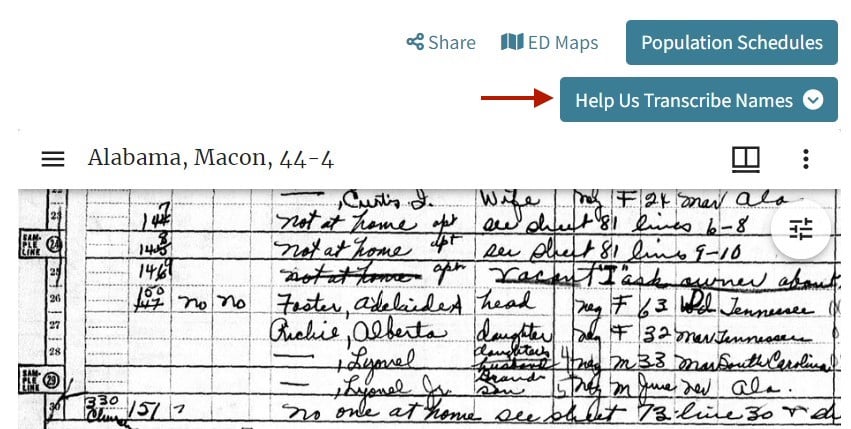 Share ED Maps Population Schedules
Help Us Transcribe Names
Alabama, Macon, 44-4
—, Curtis J. Wife neg F 24 mar Ala
23 not at home apt see sheet 81 lines 6-8
SAMPLE LINE 24 not at home apt see sheet 81 lines 9-10
25 146 not at home apt Vacant "I" ask owner about
26 147 no no Foster, Adelaide A head neg F 63 Wd Tennessee
27 Richie, Alberta daughter neg F 32 mar Tennessee
28 —, Lyonel daughter's husband neg m 33 mar South Carolina
SAMPLE LINE 29 —, Lyonel Jr. Grand son neg m June nev Ala.
30 330 151 no one at home see sheet 73 line 30